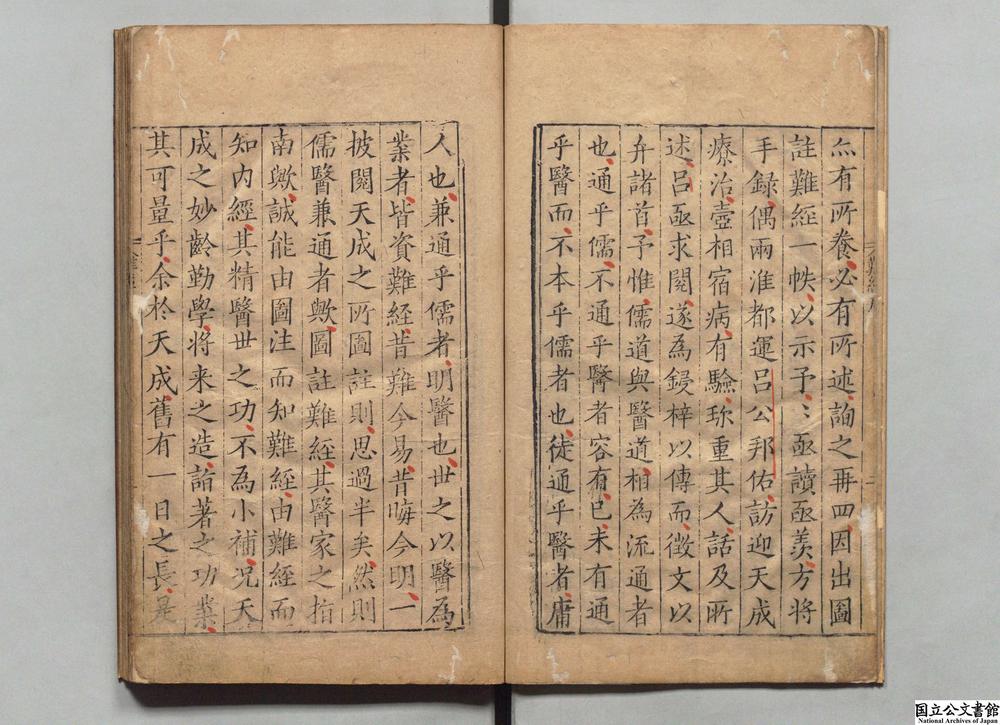 亦有所養必有所述詢之再四因出圖
註難經一帙以示予〻亟讀亟羡方將
手録偶兩淮都運吕公邦佑訪迎天成
療治壺相宿病有驗珎重其人話及所
述吕亟求閱遂為鋟梓以傳而徴文以
弁諸首予惟儒道與醫道相為流通者
也通乎儒不通乎醫者容有已未有通
乎醫而不本乎儒者也徒通乎醫者庸
人也兼通乎儒者明醫也世之以醫為
業者皆資難經昔難今易昔晦今明一
披閱天成之所圖註則思過半矣然則
儒醫兼通者歟圖註難經其醫家之指
南歟誠能由圖注而知難經由難經而
知内經其精醫世之功不為小補况天
成之妙齡勤學将来之造詣著之功業
其可量乎余於天成舊有一日之長是
國立公文書館
National Archives of Japan